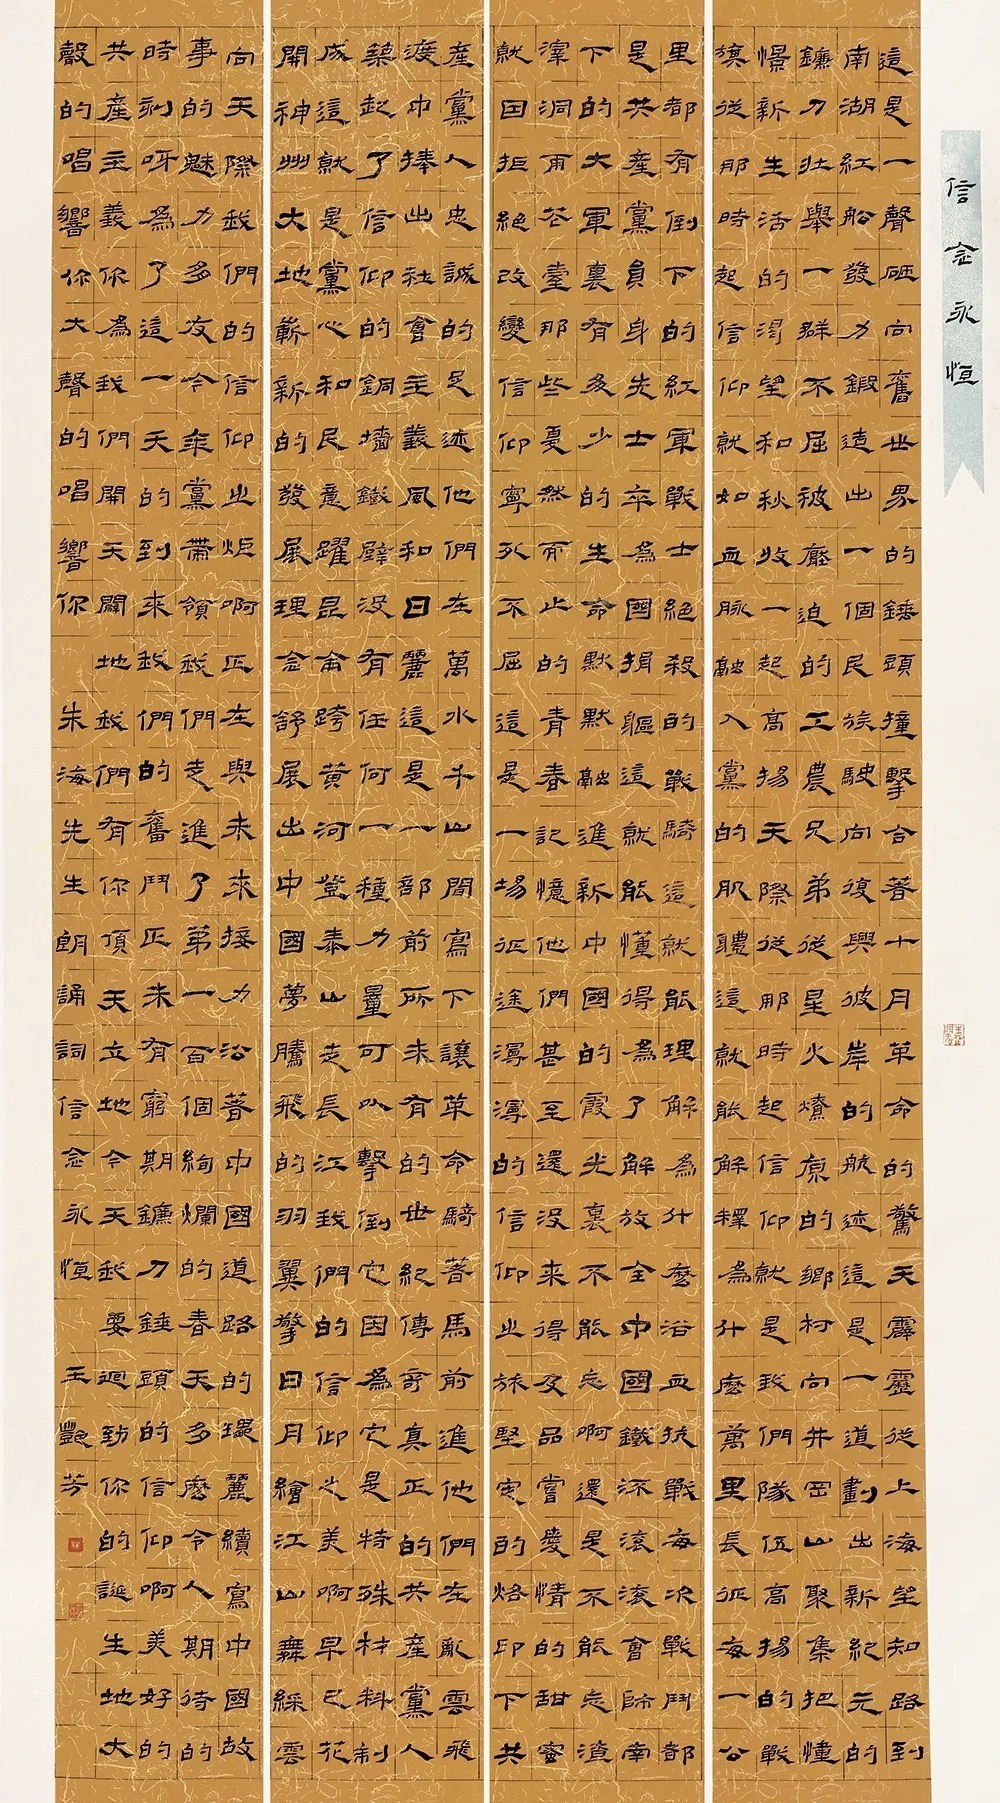 信念永恒
這是一聲砸向舊世界的錘頭撞擊合著十月革命的驚天霹靂從上海望知路到
南湖紅船發力鍛造出一個民族駛向復興彼岸的航迹這是一道劃出新紀元的
鐮刀壯舉一群不屈被壓迫的工農兄弟從星火燎原的鄉村向井岡山聚集把憧
憬新生活的渴望和秋收一起高揚天際從那時起信仰就是我們隊伍高揚的戰
旗從那時起信仰就如血脉融入黨的肌體這就能解釋為什麼萬里長征每一公
里都有倒下的紅軍戰士絕殺的戰騎這就能理解為什麼浴血抗戰每次戰鬥都
是共產黨員身先士卒為國捐軀這就能懂得為了解放全中國鐵流滾滾會師南
下的大軍裏有多少的生命默默融進新中國的霞光裏不能忘啊還是不能忘渣
滓洞雨花臺那些戛然而止的青春記憶他們甚至還沒來得及品嘗愛情的甜蜜
就因拒絕改變信仰寧死不屈這是一場征途漫漫的信仰之旅堅定的烙印下共
產黨人忠誠的足迹他們在萬水千山間寫下讓革命騎著馬前進他們在亂雲飛
渡中捧出社會主義風和日麗這是一部前所未有的世紀傳奇真正的共產黨人
築起了信仰的銅墻鐵壁沒有任何一種力量可以擊倒它因為它是特殊材料制
成這就是黨心和民意躍昆侖跨黄河登泰山走長江我們的信仰之美啊早已花
開神州大地嶄新的發展理念舒展出中國夢騰飛的羽翼擎日月繪江山舞綵雲
向天際我們的信仰之炬啊正在與未來接力沿著中國道路的瑰麗續寫中國故
事的魅力多友今年黨帶領我們走進了第一百個絢爛的春天多麼令人期待的
時刻呀為了這一天的到來我們的奮鬥正未有窮期鐮刀錘頭的信仰啊美好的
共產主義你為我們開天闢地我們有你頂天立地今天我要迴到你的誕生地大
聲的唱響你大聲的唱響你 朱海先生朗誦詞信念永恒 王艷芳